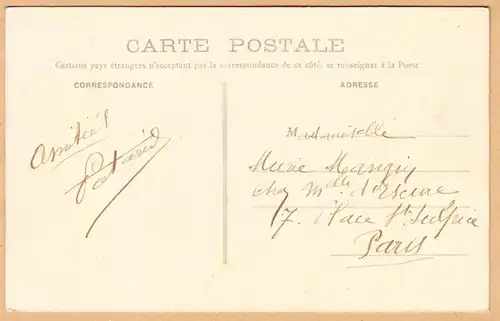 CARTE POSTALE
Certains pays étrangers n'acceptant pas la correspondance de ce côté, se renseigner à la Poste
CORRESPONDANCE
ADRESSE
Amitiés
Mademoiselle
Marie
chez Mlle
17. Place St Sulpice
Paris